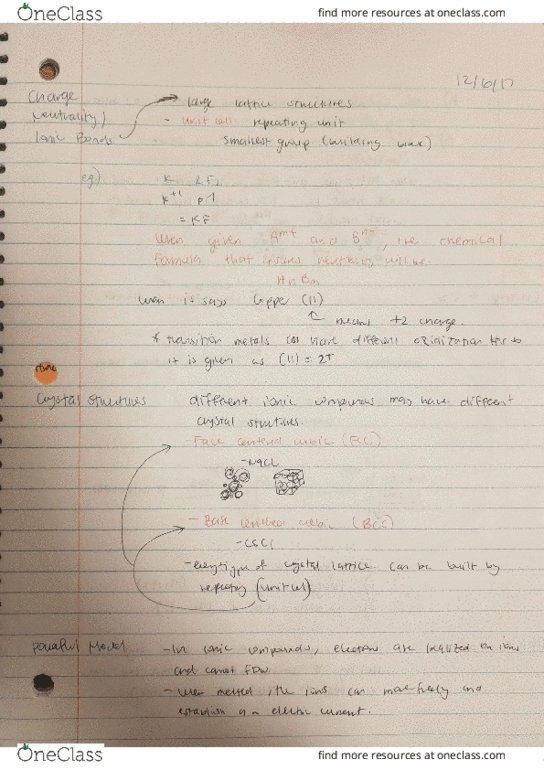 OneClass find more resources at oneclass.com
12/6/17
Charge
neutrality/
Ionic Bonds
large lattice structures
- unit cell: repeating unit
smallest group (building block)
eg) K & F2
K+1 F-1
= KF
When given Am+ and Bn-, the chemical
formula that ensures neutrality will be
AnBm
when it says Copper (II)
means +2 charge.
* transition metals can have different so
it is given as (II) = 2+
Crystal structures
different ionic compounds may have different
crystal structures.
- Face centered cubic (FCC)
- NaCl
- Base centered cubic (BCC)
- CsCl
- Every type of crystal lattice can be built by
repeating (unit cell)
Model
- In ionic compounds, electrons are localized on ions
and cannot flow.
- when melted, the ions can move freely and
establish an electric current.
OneClass find more resources at oneclass.com